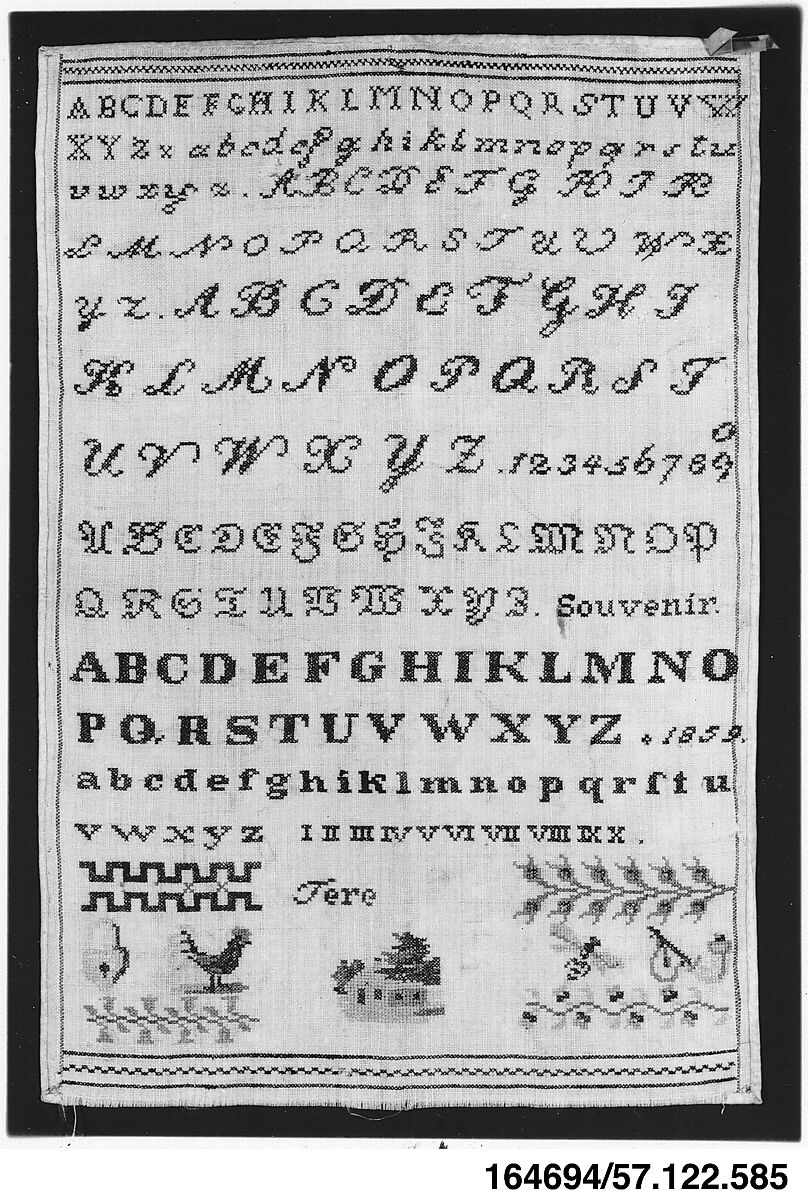 A B C D E F G H I K L M N O P Q R S T U V W
X Y Z x a b c d e f g h i k l m n o p q r s t u
v w x y z . A B C D E F G H I K
L M N O P Q R S T U V W X
Y Z . A B C D E F G H I
K L M N O P Q R S T
U V W X Y Z . 1 2 3 4 5 6 7 8 9 0
A B C D E F G H I K L M N O P
Q R S T U V W X Y Z . Souvenir.
A B C D E F G H I K L M N O
P Q R S T U V W X Y Z . 1859.
a b c d e f g h i k l m n o p q r ſ t u
v w x y z I II III IV V VI VII VIII IX X .
Tere
164694/57.122.585